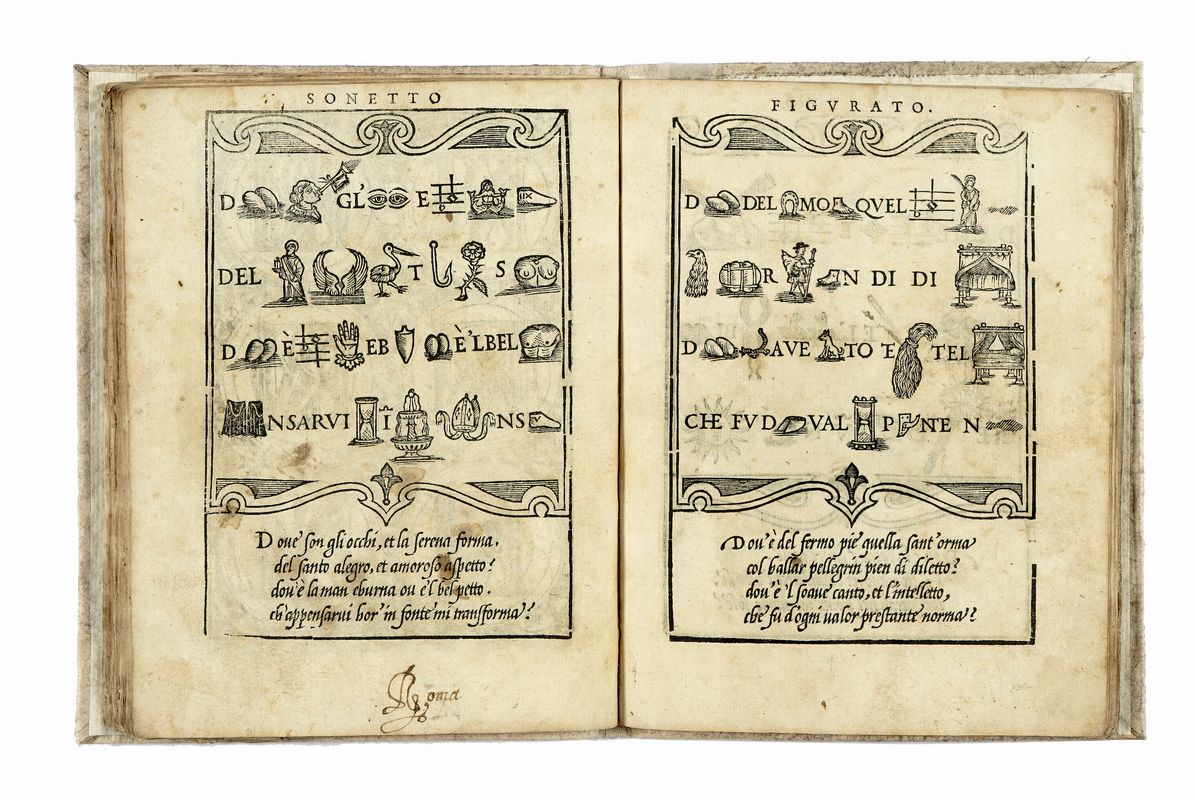 SONETTO
D GL' E
DEL T S
D È EB È 'L BEL
NSARVI Ī NS
D oue son gli occhi, et la serena forma.
del santo alegro, et amoroso aspetto?
dou'è la man eburna ou è'l bel petto.
ch'appensarui hor' in fonte mi transforma?
Roma
FIGVRATO.
D DEL MO QVEL
R N DI DI
D AVE TO E TEL
CHE FV D VAL P NTE N
Dou'è del fermo pie quella sant'orma
col ballar pellegrin pien di diletto?
dou'è 'l soaue canto, et l'intelletto,
che fu d'ogni ualor prestante norma?